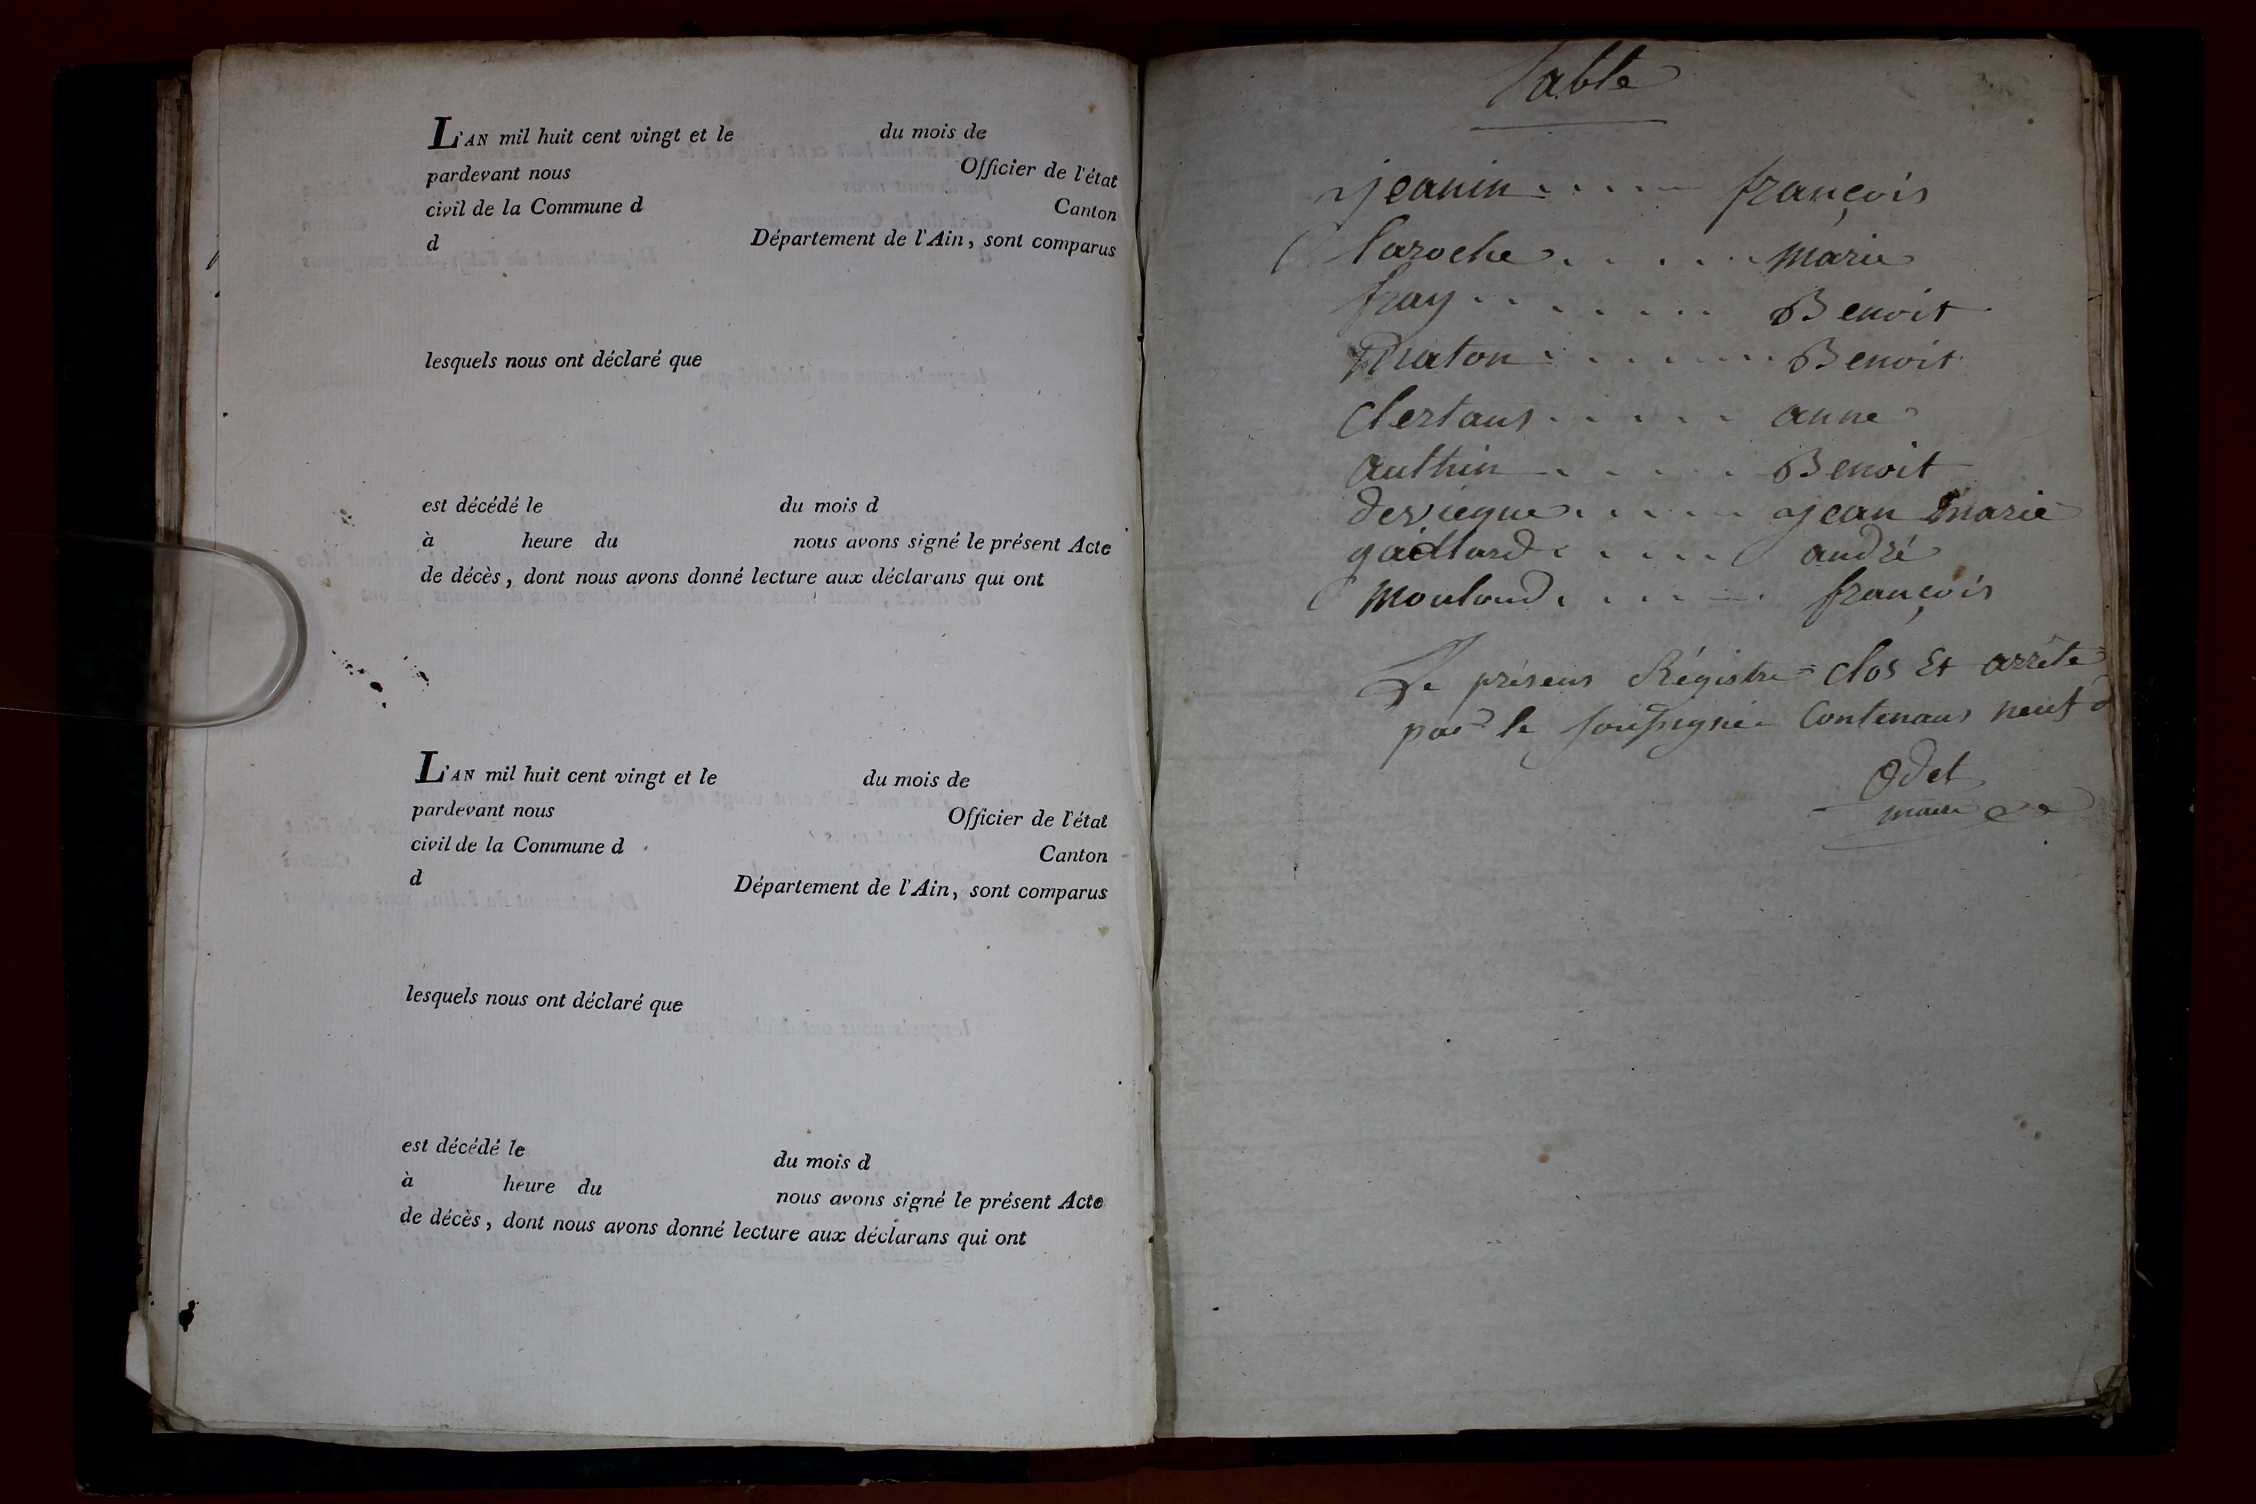 L'AN mil huit cent vingt et le du mois de
pardevant nous Officier de l'état
civil de la Commune d Canton
d Département de l'Ain, sont comparus
lesquels nous ont déclaré que
est décédé le du mois d
à heure du nous avons signé le présent Acte
de décès, dont nous avons donné lecture aux déclarans qui ont
L'AN mil huit cent vingt et le du mois de
pardevant nous Officier de l'état
civil de la Commune d Canton
d Département de l'Ain, sont comparus
lesquels nous ont déclaré que
est décédé le du mois d
à heure du nous avons signé le présent Acte
de décès, dont nous avons donné lecture aux déclarans qui ont
Table
jeanin françois
laroche marie
fray Benoit
Benoit
anne
authin Benoit
jean marie
gaillard andré
françois
Le présent Régistre clos Et arrête
par le soussigné Contenant neuf
Odet
maire